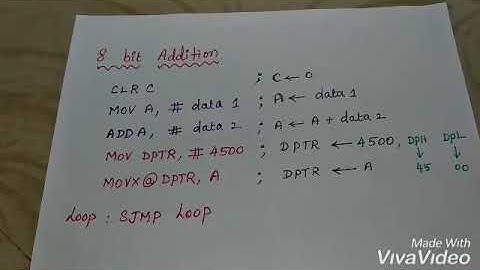 8 bit Addition
CLR C ; C ← 0
MOV A, # data 1 ; A ← data 1
ADD A, # data 2 ; A ← A + data 2
MOV DPTR, # 4500 ; DPTR ← 4500, DPH DPL
↓ ↓
MOVX @ DPTR, A ; DPTR ← A 45 00
Loop : SJMP Loop
Made With
VivaVideo